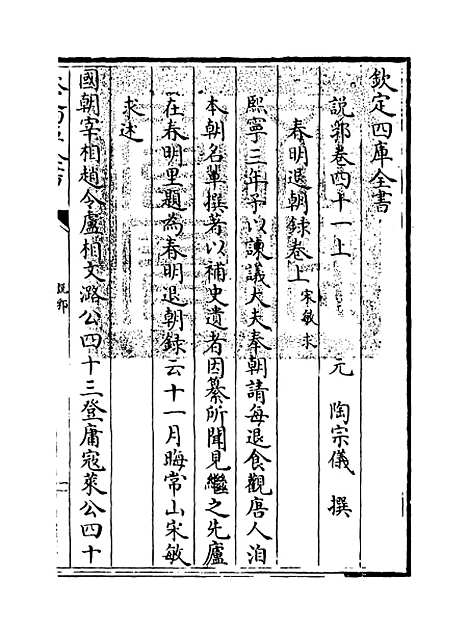 欽定四庫全書
說郛卷四十一上
元 陶宗儀 撰
春明退朝録卷上 宋敏求
熙寧三年予以諫議大夫奉朝請每退食觀唐人洎
本朝名軰撰著以補史遺者因纂所聞見繼之先廬
在春明里題為春明退朝録云十一月晦常山宋敏
求述
國朝宰相趙令盧相文潞公四十三登庸寇萊公四十
說郛